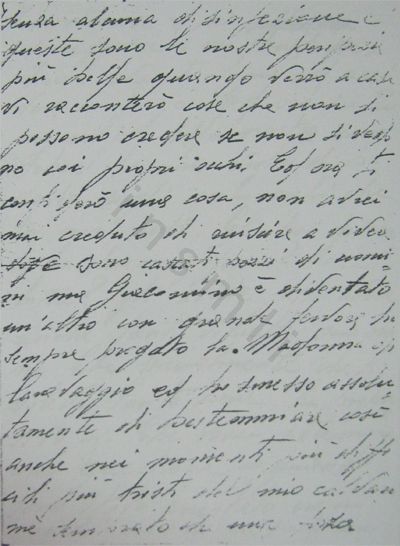 senza alcuna disinfezione e
queste sono le nostre
più belle quando verrò a casa
vi racconterò cose che non si
possono credere se non si vedo
no coi propri occhi. Ed ora ti
una cosa, non avrei
mai creduto di riuscire a vedere
sono di uomi-
ni ma Giacomino è diventato
un'altro con grande fervore ho
sempre pregato la Madonna di
Caravaggio ed ho smesso assolu-
tamente di bestemmiare così
anche nei momenti più diffi
cili più tristi del mio
m'è sembrato di una